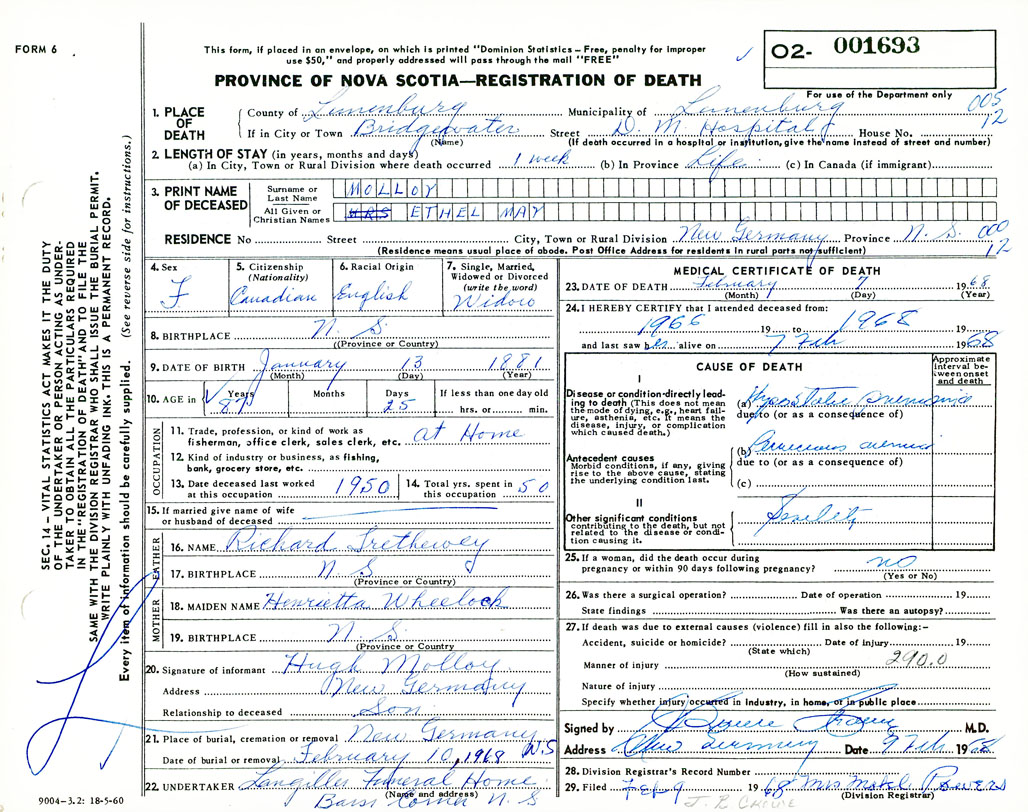 FORM 6
This form, if placed in an envelope, on which is printed "Dominion Statistics – Free, penalty for improper
use $50," and properly addressed will pass through the mail "FREE"
O2- 001693
PROVINCE OF NOVA SCOTIA—REGISTRATION OF DEATH
For use of the Department only
005
12
1. PLACE OF DEATH
County of Lunenburg Municipality of Lunenburg
If in City or Town Bridgewater Street D. M. Hospital House No.
(Name) (If death occurred in a hospital or institution, give the name instead of street and number)
2. LENGTH OF STAY (in years, months and days)
(a) In City, Town or Rural Division where death occurred 1 week (b) In Province Life (c) In Canada (if immigrant)
3. PRINT NAME OF DECEASED
Surname or Last Name MOLLOY
All Given or Christian Names MRS ETHEL MAY
RESIDENCE No Street City, Town or Rural Division New Germany Province N. S. 000
12
(Residence means usual place of abode. Post Office Address for residents in rural parts not sufficient)
4. Sex F
5. Citizenship (Nationality) Canadian
6. Racial Origin English
7. Single, Married, Widowed or Divorced (write the word) Widow
8. BIRTHPLACE N. S.
(Province or Country)
9. DATE OF BIRTH January 13 1881
(Month) (Day) (Year)
10. AGE in Years 87 Months Days 25 If less than one day old hrs. or min.
OCCUPATION
11. Trade, profession, or kind of work as
fisherman, office clerk, sales clerk, etc. at Home
12. Kind of industry or business, as fishing,
bank, grocery store, etc.
13. Date deceased last worked
at this occupation 1950
14. Total yrs. spent in
this occupation 50
15. If married give name of wife
or husband of deceased
FATHER
16. NAME Richard Trethewey
17. BIRTHPLACE N. S.
(Province or Country)
MOTHER
18. MAIDEN NAME Henrietta Wheelock
19. BIRTHPLACE N. S.
(Province or Country)
20. Signature of informant Hugh Molloy
Address New Germany
Relationship to deceased Son
21. Place of burial, cremation or removal New Germany N.S
Date of burial or removal February 10, 1968
22. UNDERTAKER Langilles Funeral Home
(Name and address)
Barss Corner N. S
MEDICAL CERTIFICATE OF DEATH
23. DATE OF DEATH February 7 1968
(Month) (Day) (Year)
24. I HEREBY CERTIFY that I attended deceased from:
1966 19 to 1968 19
and last saw her alive on 7 Feb 1968
CAUSE OF DEATH
Approximate interval between onset and death
I
Disease or condition directly leading to death (This does not mean the mode of dying, e.g., heart failure, asthenia, etc. It means the disease, injury, or complication which caused death.)
(a) Hypostatic Pneumonia
due to (or as a consequence of)
Antecedent causes
Morbid conditions, if any, giving rise to the above cause, stating the underlying condition last.
(b) Pernicious anemia
due to (or as a consequence of)
(c)
II
Other significant conditions
contributing to the death, but not related to the disease or condition causing it.
Senility
25. If a woman, did the death occur during
pregnancy or within 90 days following pregnancy? no
(Yes or No)
26. Was there a surgical operation? Date of operation 19
State findings Was there an autopsy?
27. If death was due to external causes (violence) fill in also the following:–
Accident, suicide or homicide? Date of injury 19
(State which)
290.0
Manner of injury
(How sustained)
Nature of injury
Specify whether injury occurred in industry, in home, or in public place
Signed by M.D.
Address New Germany Date 9 Feb 1968
28. Division Registrar's Record Number
29. Filed FEB 9 1968 Mrs
(Division Registrar)
SEC. 14 – VITAL STATISTICS ACT MAKES IT THE DUTY
OF THE UNDERTAKER OR PERSON ACTING AS UNDER-
TAKER TO OBTAIN ALL THE PARTICULARS REQUIRED
IN THE "REGISTRATION OF DEATH" AND TO FILE THE
SAME WITH THE DIVISION REGISTRAR WHO SHALL ISSUE THE BURIAL PERMIT.
WRITE PLAINLY WITH UNFADING INK. THIS IS A PERMANENT RECORD.
Every item of information should be carefully supplied. (See reverse side for instructions.)
9004–3.2: 18-5-60